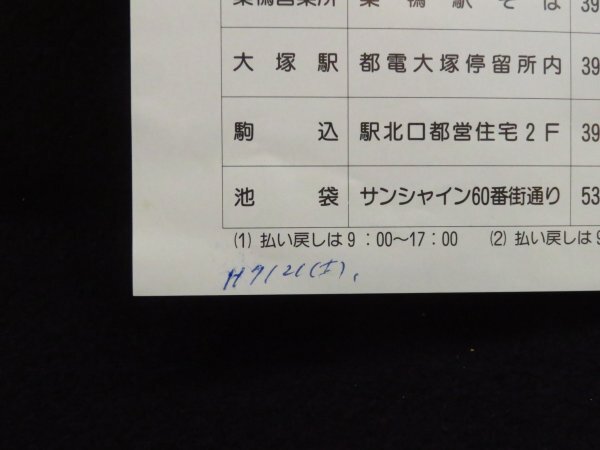 巣鴨営業所 巣鴨駅そば 39
大塚駅 都電大塚停留所内 39
駒込 駅北口都営住宅2F 39
池袋 サンシャイン60番街通り 53
(1) 払い戻しは9:00〜17:00 (2) 払い戻しは9